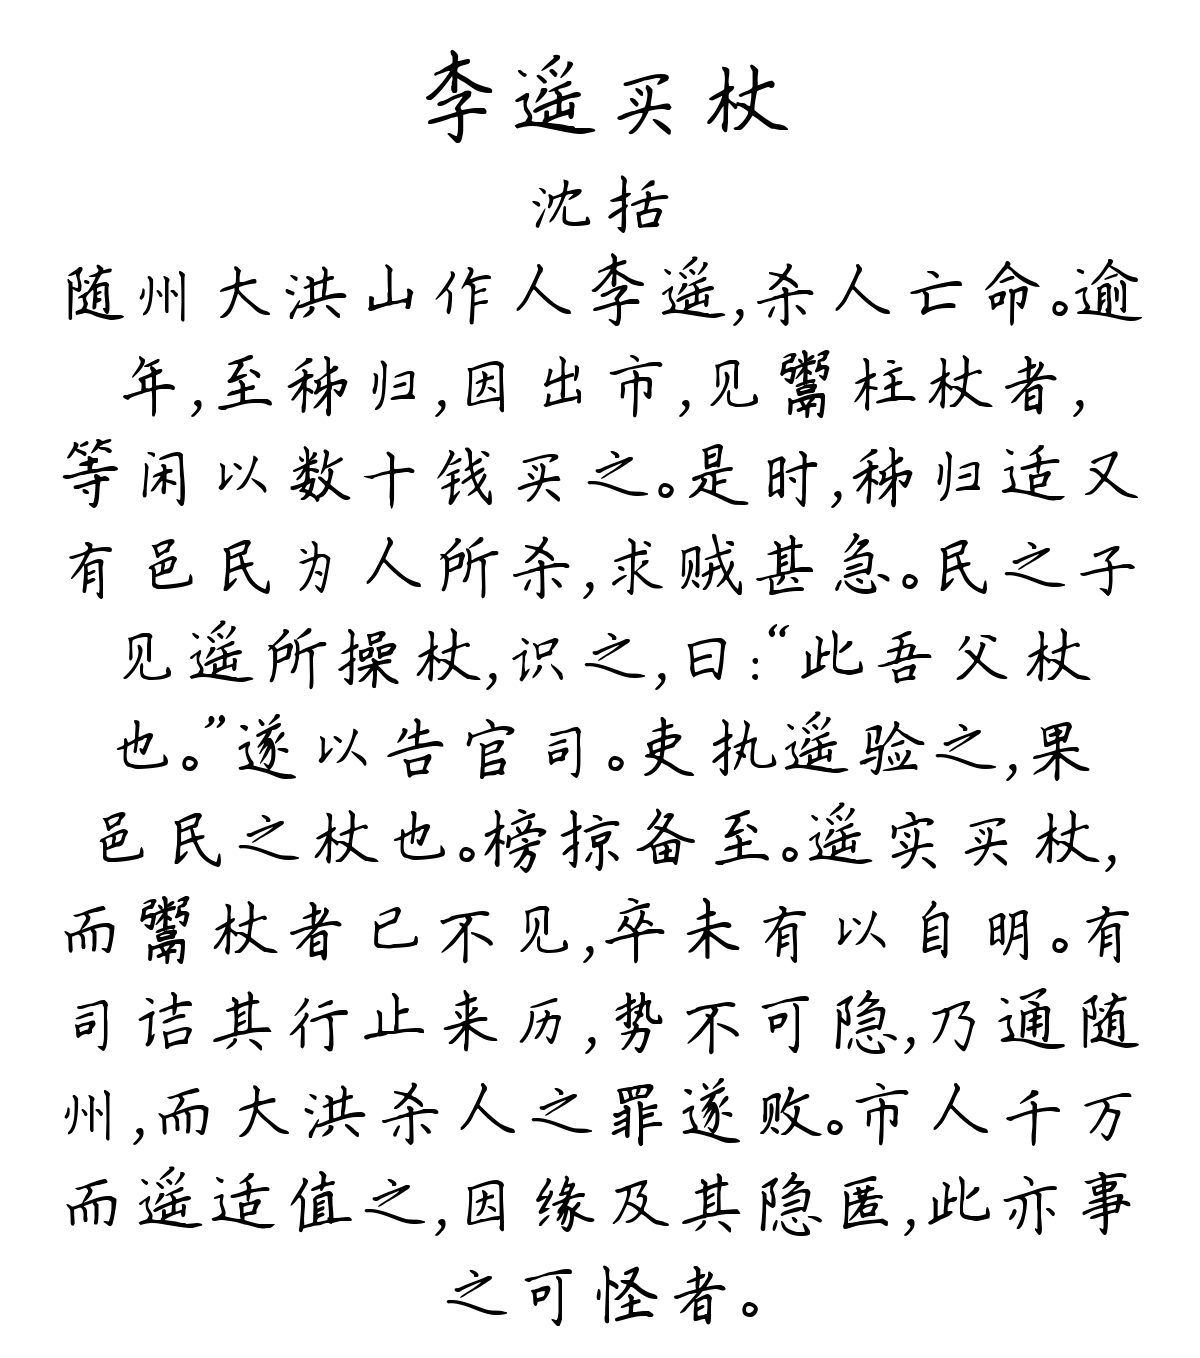 李遥买杖
沈括
随州大洪山作人李遥,杀人亡命。逾
年,至秭归,因出市,见鬻柱杖者,
等闲以数十钱买之。是时,秭归适又
有邑民为人所杀,求贼甚急。民之子
见遥所操杖,识之,曰:“此吾父杖
也。”遂以告官司。吏执遥验之,果
邑民之杖也。榜掠备至。遥实买杖,
而鬻杖者已不见,卒未有以自明。有
司诘其行止来历,势不可隐,乃通随
州,而大洪杀人之罪遂败。市人千万
而遥适值之,因缘及其隐匿,此亦事
之可怪者。